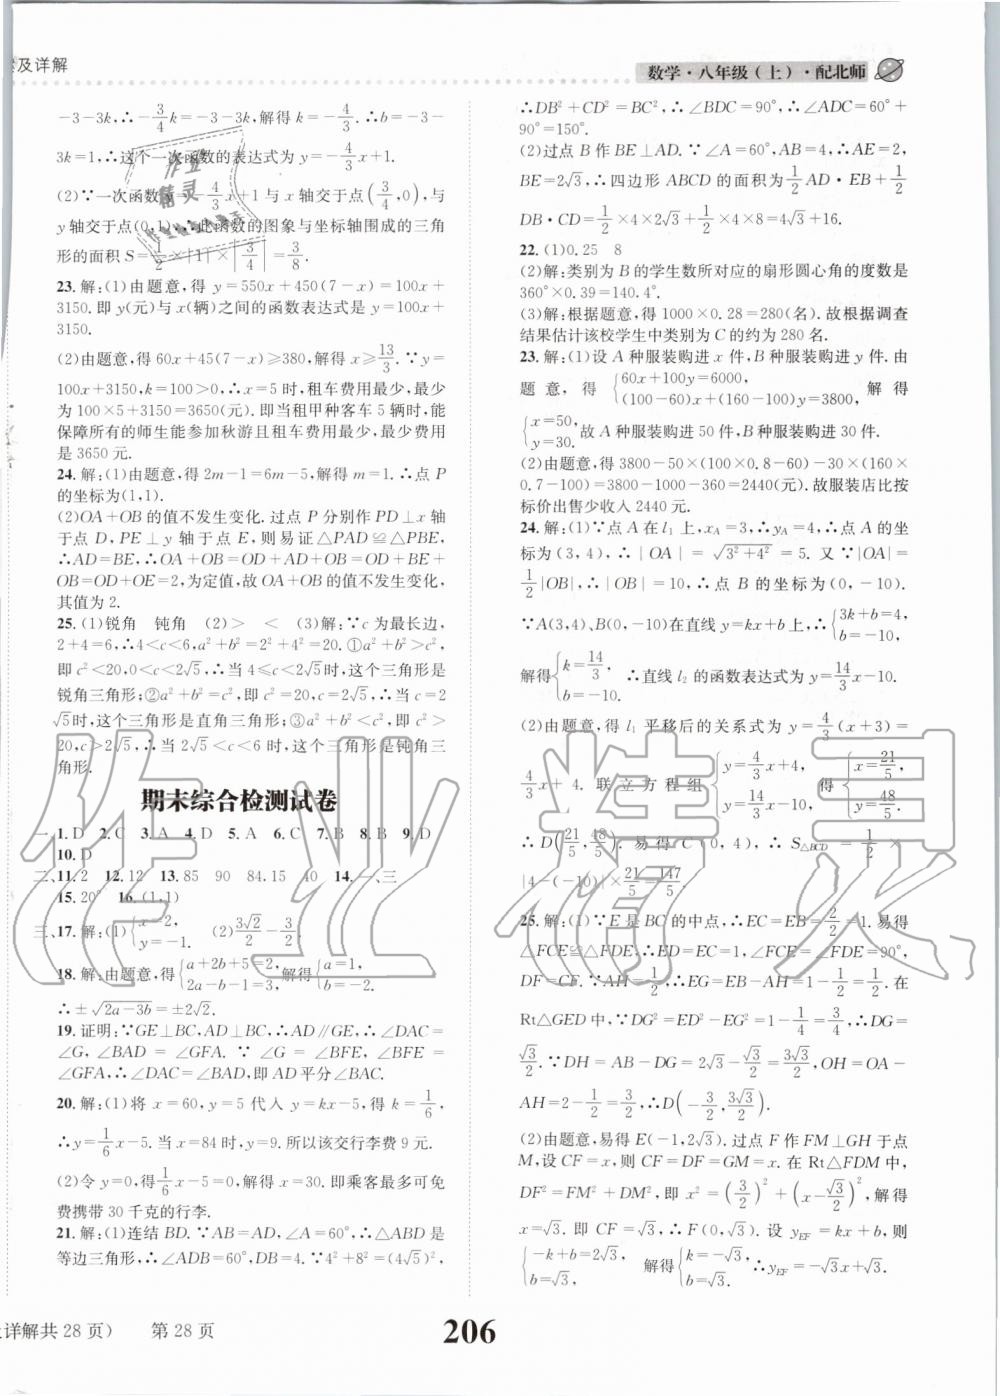 案及详解
数学·八年级(上)·配北师
-3-3k,∴-3/4k=-3-3k,解得k=-4/3.∴b=-3-
3k=1,∴这个一次函数的表达式为y=-4/3x+1.
(2)∵一次函数y=-4/3x+1与x轴交于点(3/4,0),与
y轴交于点(0,1),∴此函数的图象与坐标轴围成的三角
形的面积S=1/2×|1|×|3/4|=3/8.
23.解:(1)由题意,得y=550x+450(7-x)=100x+
3150.即y(元)与x(辆)之间的函数表达式是y=100x+
3150.
(2)由题意,得60x+45(7-x)≥380,解得x≥13/3.∵y=
100x+3150,k=100>0,∴x=5时,租车费用最少,最少
为100×5+3150=3650(元).即当租甲种客车5辆时,能
保障所有的师生能参加秋游且租车费用最少,最少费用
是3650元.
24.解:(1)由题意,得2m-1=6m-5,解得m=1.∴点P
的坐标为(1,1).
(2)OA+OB的值不发生变化.过点P分别作PD⊥x轴
于点D,PE⊥y轴于点E,则易证△PAD≌△PBE,
∴AD=BE,∴OA+OB=OD+AD+OB=OD+BE+
OB=OD+OE=2,为定值,故OA+OB的值不发生变化,
其值为2.
25.(1)锐角 钝角 (2)> < (3)解:∵c为最长边,
2+4=6,∴4<c<6,a²+b²=2²+4²=20.①a²+b²>c²,
即c²<20,0<c<2√5,∴当4≤c<2√5时,这个三角形是
锐角三角形;②a²+b²=c²,即c²=20,c=2√5,∴当c=2
√5时,这个三角形是直角三角形;③a²+b²<c²,即c²>
20,c>2√5,∴当2√5<c<6时,这个三角形是钝角三
角形.
期末综合检测试卷
一、1.D 2.C 3.A 4.D 5.A 6.C 7.B 8.B 9.D
10.D
二、11.2 12.12 13.85 90 84.15 40 14.一、三
15.20° 16.(1,1)
三、17.解:(1){x=2, y=-1. (2)3√2/2-3/2.
18.解:由题意,得{a+2b+5=2, 2a-1-b=3,解得{a=1, b=-2.
∴±√(2a-3b)=±2√2.
19.证明:∵GE⊥BC,AD⊥BC,∴AD∥GE,∴∠DAC=
∠G,∠BAD=∠GFA.∵∠G=∠BFE,∠BFE=
∠GFA,∴∠DAC=∠BAD,即AD平分∠BAC.
20.解:(1)将x=60,y=5代入y=kx-5,得k=1/6,
∴y=1/6x-5.当x=84时,y=9.所以该交行李费9元.
(2)令y=0,得1/6x-5=0,解得x=30.即乘客最多可免
费携带30千克的行李.
21.解:(1)连结BD.∵AB=AD,∠A=60°,∴△ABD是
等边三角形,∴∠ADB=60°,DB=4.∵4²+8²=(4√5)²,
∴DB²+CD²=BC²,∴∠BDC=90°,∴∠ADC=60°+
90°=150°.
(2)过点B作BE⊥AD.∵∠A=60°,AB=4,∴AE=2,
BE=2√3,∴四边形ABCD的面积为1/2AD·EB+1/2
DB·CD=1/2×4×2√3+1/2×4×8=4√3+16.
22.(1)0.25 8
(2)解:类别为B的学生数所对应的扇形圆心角的度数是
360°×0.39=140.4°.
(3)解:根据题意,得1000×0.28=280(名).故根据调查
结果估计该校学生中类别为C的约为280名.
23.解:(1)设A种服装购进x件,B种服装购进y件.由
题意,得{60x+100y=6000, (100-60)x+(160-100)y=3800,解得
{x=50, y=30.故A种服装购进50件,B种服装购进30件.
(2)由题意,得3800-50×(100×0.8-60)-30×(160
×0.7-100)=3800-1000-360=2440(元).故服装店比按
标价出售少收入2440元.
24.解:(1)∵点A在l₁上,xA=3,∴yA=4,∴点A的坐
标为(3,4),∴|OA|=√(3²+4²)=5.又∵|OA|=
1/2|OB|,∴|OB|=10,∴点B的坐标为(0,-10).
∵A(3,4)、B(0,-10)在直线y=kx+b上,∴{3k+b=4, b=-10,
解得{k=14/3, b=-10.∴直线l₂的函数表达式为y=14/3x-10.
(2)由题意,得l₁平移后的关系式为y=4/3(x+3)=
4/3x+4.联立方程组{y=4/3x+4, y=14/3x-10,得{x=21/5, y=48/5.
∴D(21/5,48/5).易得C(0,4),∴S△BCD=1/2×
|4-(-10)|×21/5=147/5.
25.解:(1)∵E是BC的中点,∴EC=EB=2/2=1.易得
△FCE≌△FDE,∴ED=EC=1,∠FCE=∠FDE=90°,
DF=CF.∵AH=1/2,∴EG=EB-AH=1-1/2=1/2.在
Rt△GED中,∵DG²=ED²-EG²=1-1/4=3/4,∴DG=
√3/2.∵DH=AB-DG=2√3-√3/2=3√3/2,OH=OA-
AH=2-1/2=3/2,∴D(-3/2,3√3/2).
(2)由题意,易得E(-1,2√3).过点F作FM⊥GH于点
M,设CF=x,则CF=DF=GM=x.在Rt△FDM中,
DF²=FM²+DM²,即x²=(3/2)²+(x-√3/2)²,解得
x=√3.即CF=√3,∴F(0,√3).设yEF=kx+b,则
{-k+b=2√3, b=√3,解得{k=-√3, b=√3,∴yEF=-√3x+√3.
详解共28页) 第28页
206
作业精灵
作业
精灵